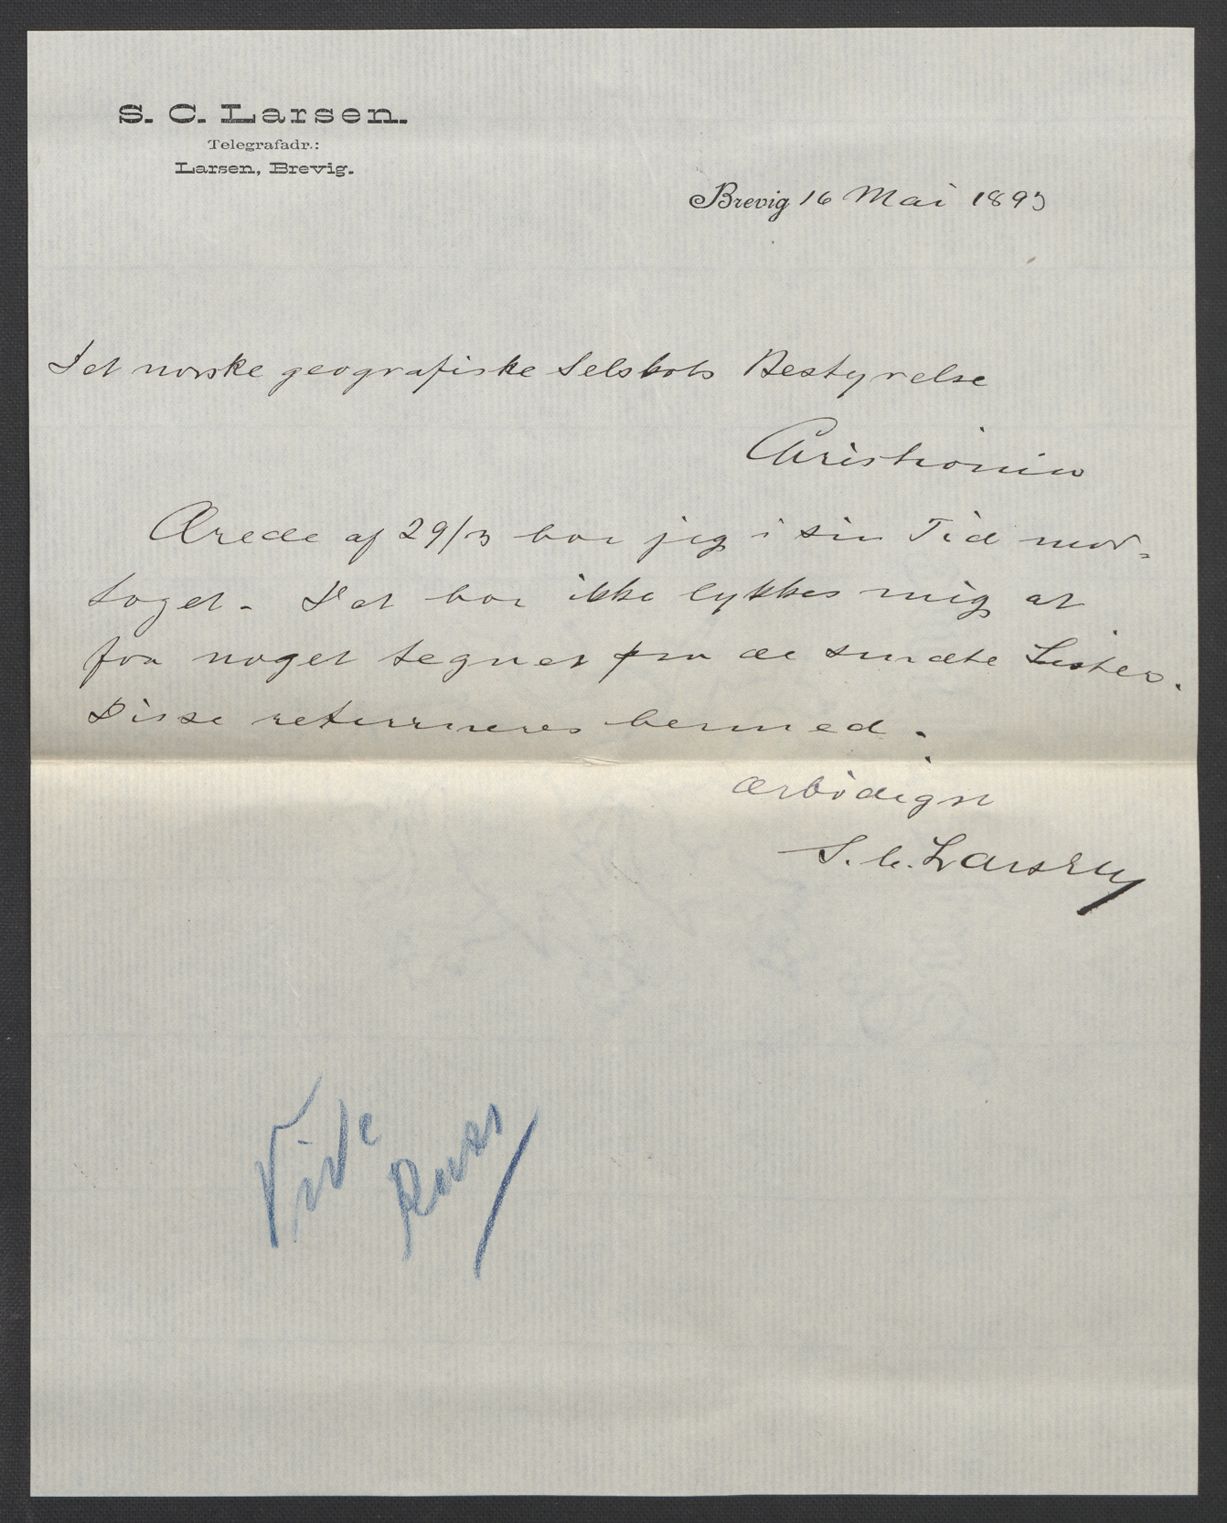 S. C. Larsen.
Telegrafadr.:
Larsen, Brevig.
Brevig 16 Mai 1893
Det norske geografiske Selskabs Bestyrelse
Christiania
Ærede af 29/3 har jeg i sin Tid mod-
taget. Det har ikke lykkes mig at
faa noget tegnet paa de sendte Lister.
Disse returneres hermed.
ærbödigst
S. C. Larsen
Vide